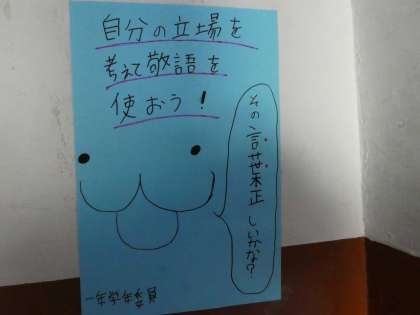 自分の立場を
考えて敬語を
使おう！
その言葉正しいかな？
一年学年委員